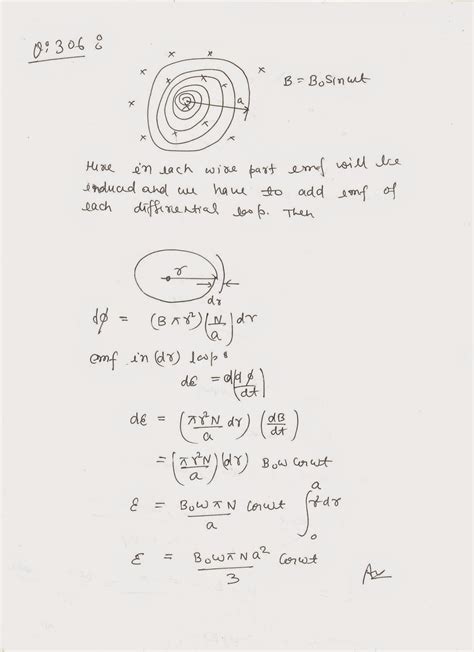 Q:306:
B = B₀Sinωt
a
Here in each wire part emf will be
induced and we have to add emf of
each differential loop. Then
r
dr
dϕ = (Bπr²)(N/a)dr
emf in (dr) loop:
dε = d(dϕ)/dt
dε = (πr²N/a dr) (dB/dt)
= (πr²N/a)(dr) B₀ω cosωt
ε = B₀ωπN/a cosωt ∫₀ᵃ r²dr
ε = B₀ωπNa²/3 cosωt